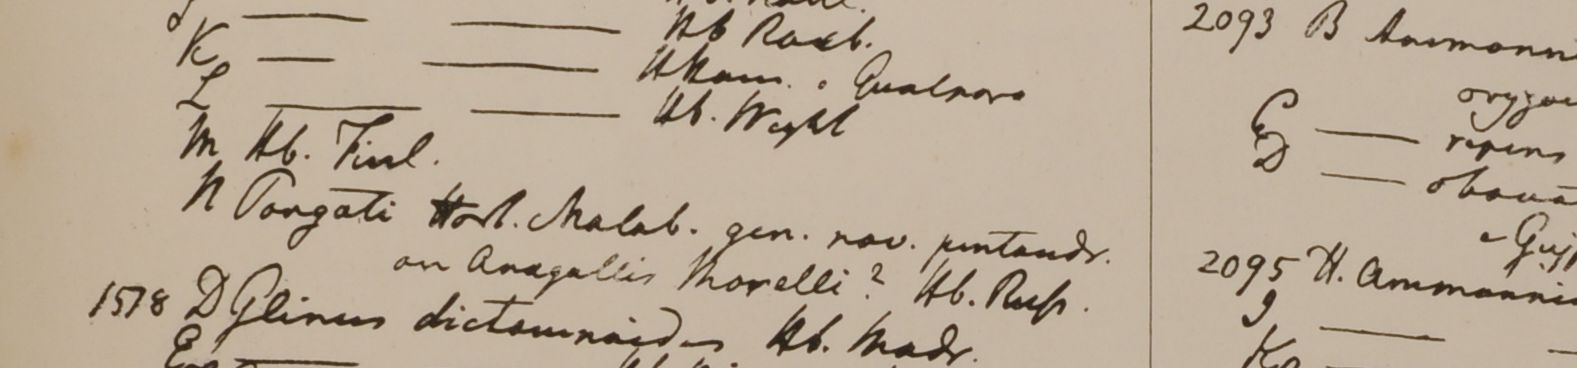 K — — Hb Roxb.
L — — HHam. e Gualpara
— — Hb. Wight
M Hb. Finl.
N Pongati Hort. Malab. gen. nov. pentandr.
an Anagallis Monelli? Hb. Russ.
1518 D Glinus dictamnoides Hb. Madr.
E —
2093 B Ammanni
C — repens
D — obova
e Guj
2095 H. Ammannia
9 —
K